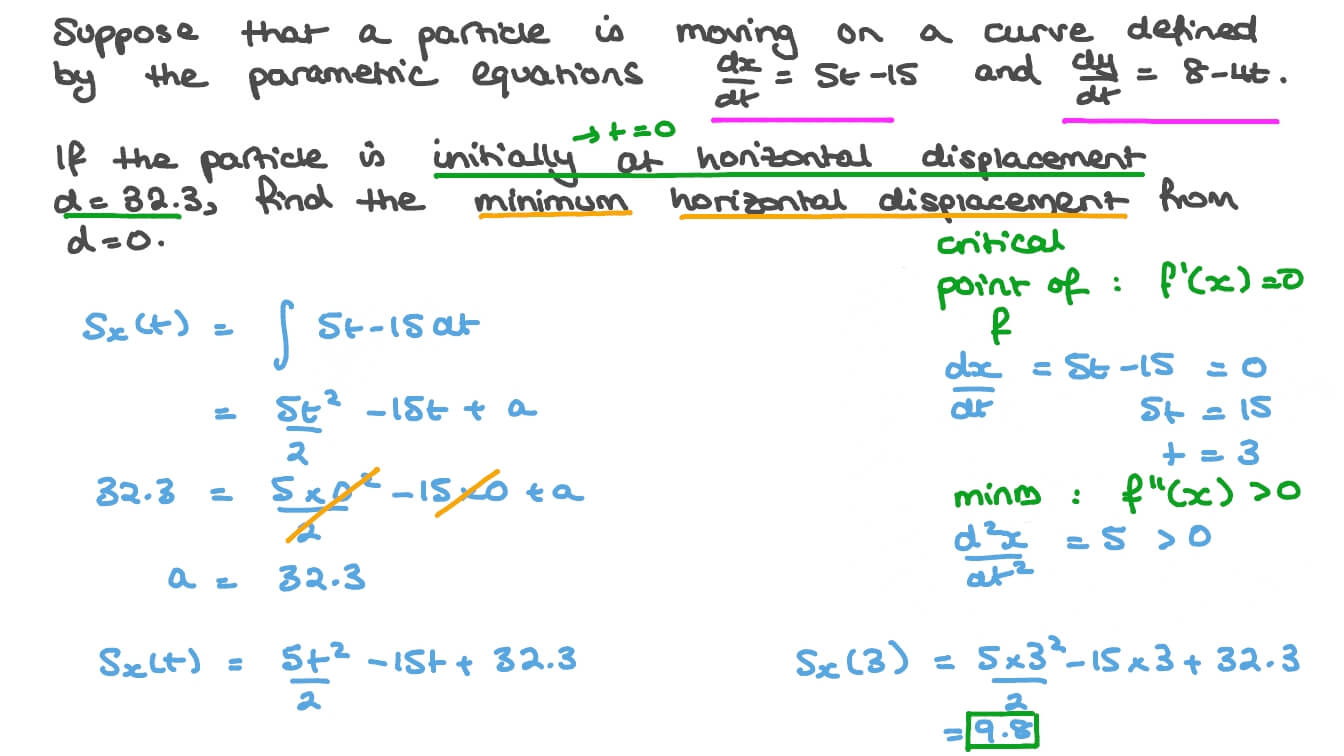 Suppose that a particle is moving on a curve defined
by the parametric equations dx/dt = 5t -15 and dy/dt = 8-4t.
→ t = 0
If the particle is initially at horizontal displacement
d = 32.3, find the minimum horizontal displacement from
d=0.
critical
point of : f'(x) = 0
f
Sx(t) = ∫ 5t - 15 dt
dx/dt = 5t - 15 = 0
= 5t²/2 - 15t + a
5t = 15
t = 3
32.3 = 5 × 0²/2 - 15 × 0 + a
minm : f''(x) > 0
d²x/dt² = 5 > 0
a = 32.3
Sx(t) = 5t²/2 - 15t + 32.3
Sx(3) = 5×3²/2 - 15 × 3 + 32.3
= 9.8